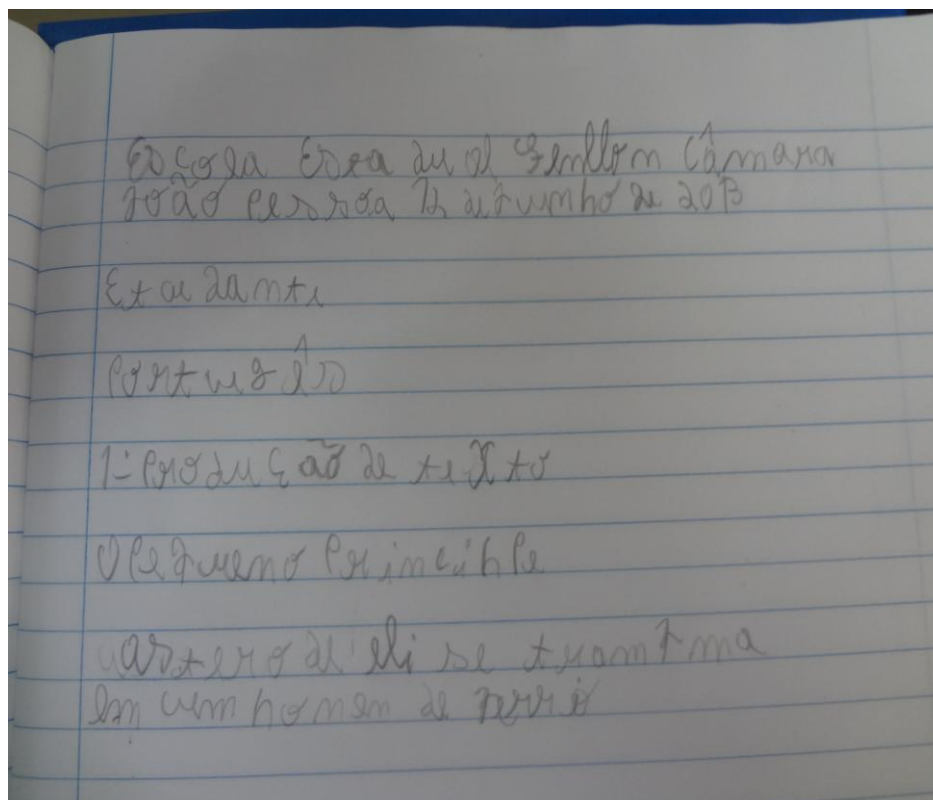 Escola Estadual Senllon Câmara
João Pessoa 12 de Junho de 2013
Estudante
Portugûes
1- Produção de texto
O Pequeno Princible
asterode eli se tranfma
em um homen de